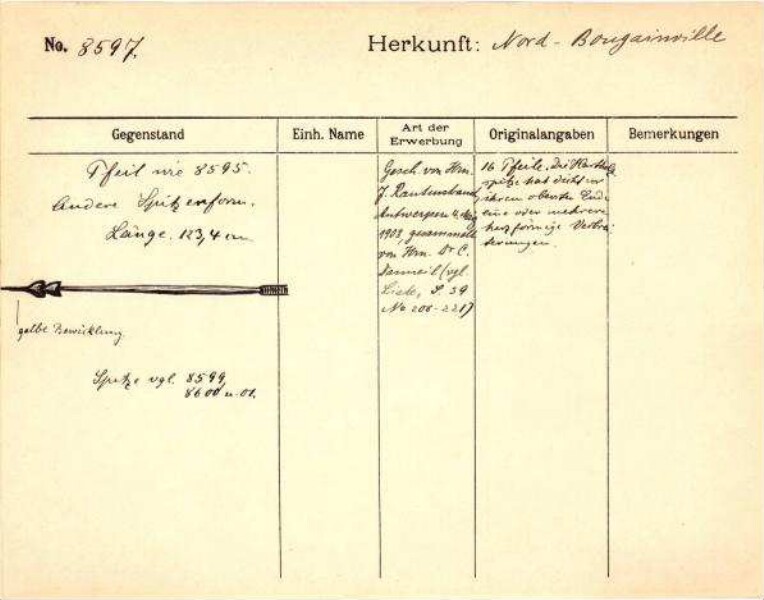 No. 8597. Herkunft: Nord-Bougainville
Gegenstand
Einh. Name
Art der
Erwerbung
Originalangaben
Bemerkungen
Pfeil wie 8595.
Andere Spitzenform.
Länge. 123,4 cm
gelbe Bewicklung
Spitze vgl. 8599,
8600 u. 01.
Gesch. von Hrn.
J. Rautenstrauch,
Antwerpen
1903, gesammelt
von Hrn. Dr C.
Danneil (vgl.
Liste, S. 39
No 206-221)
16 Pfeile. Die Hartholz
spitze hat dicht vor
ihrem obersten Ende
eine oder mehrere
herzförmige Verbrei-
terungen.